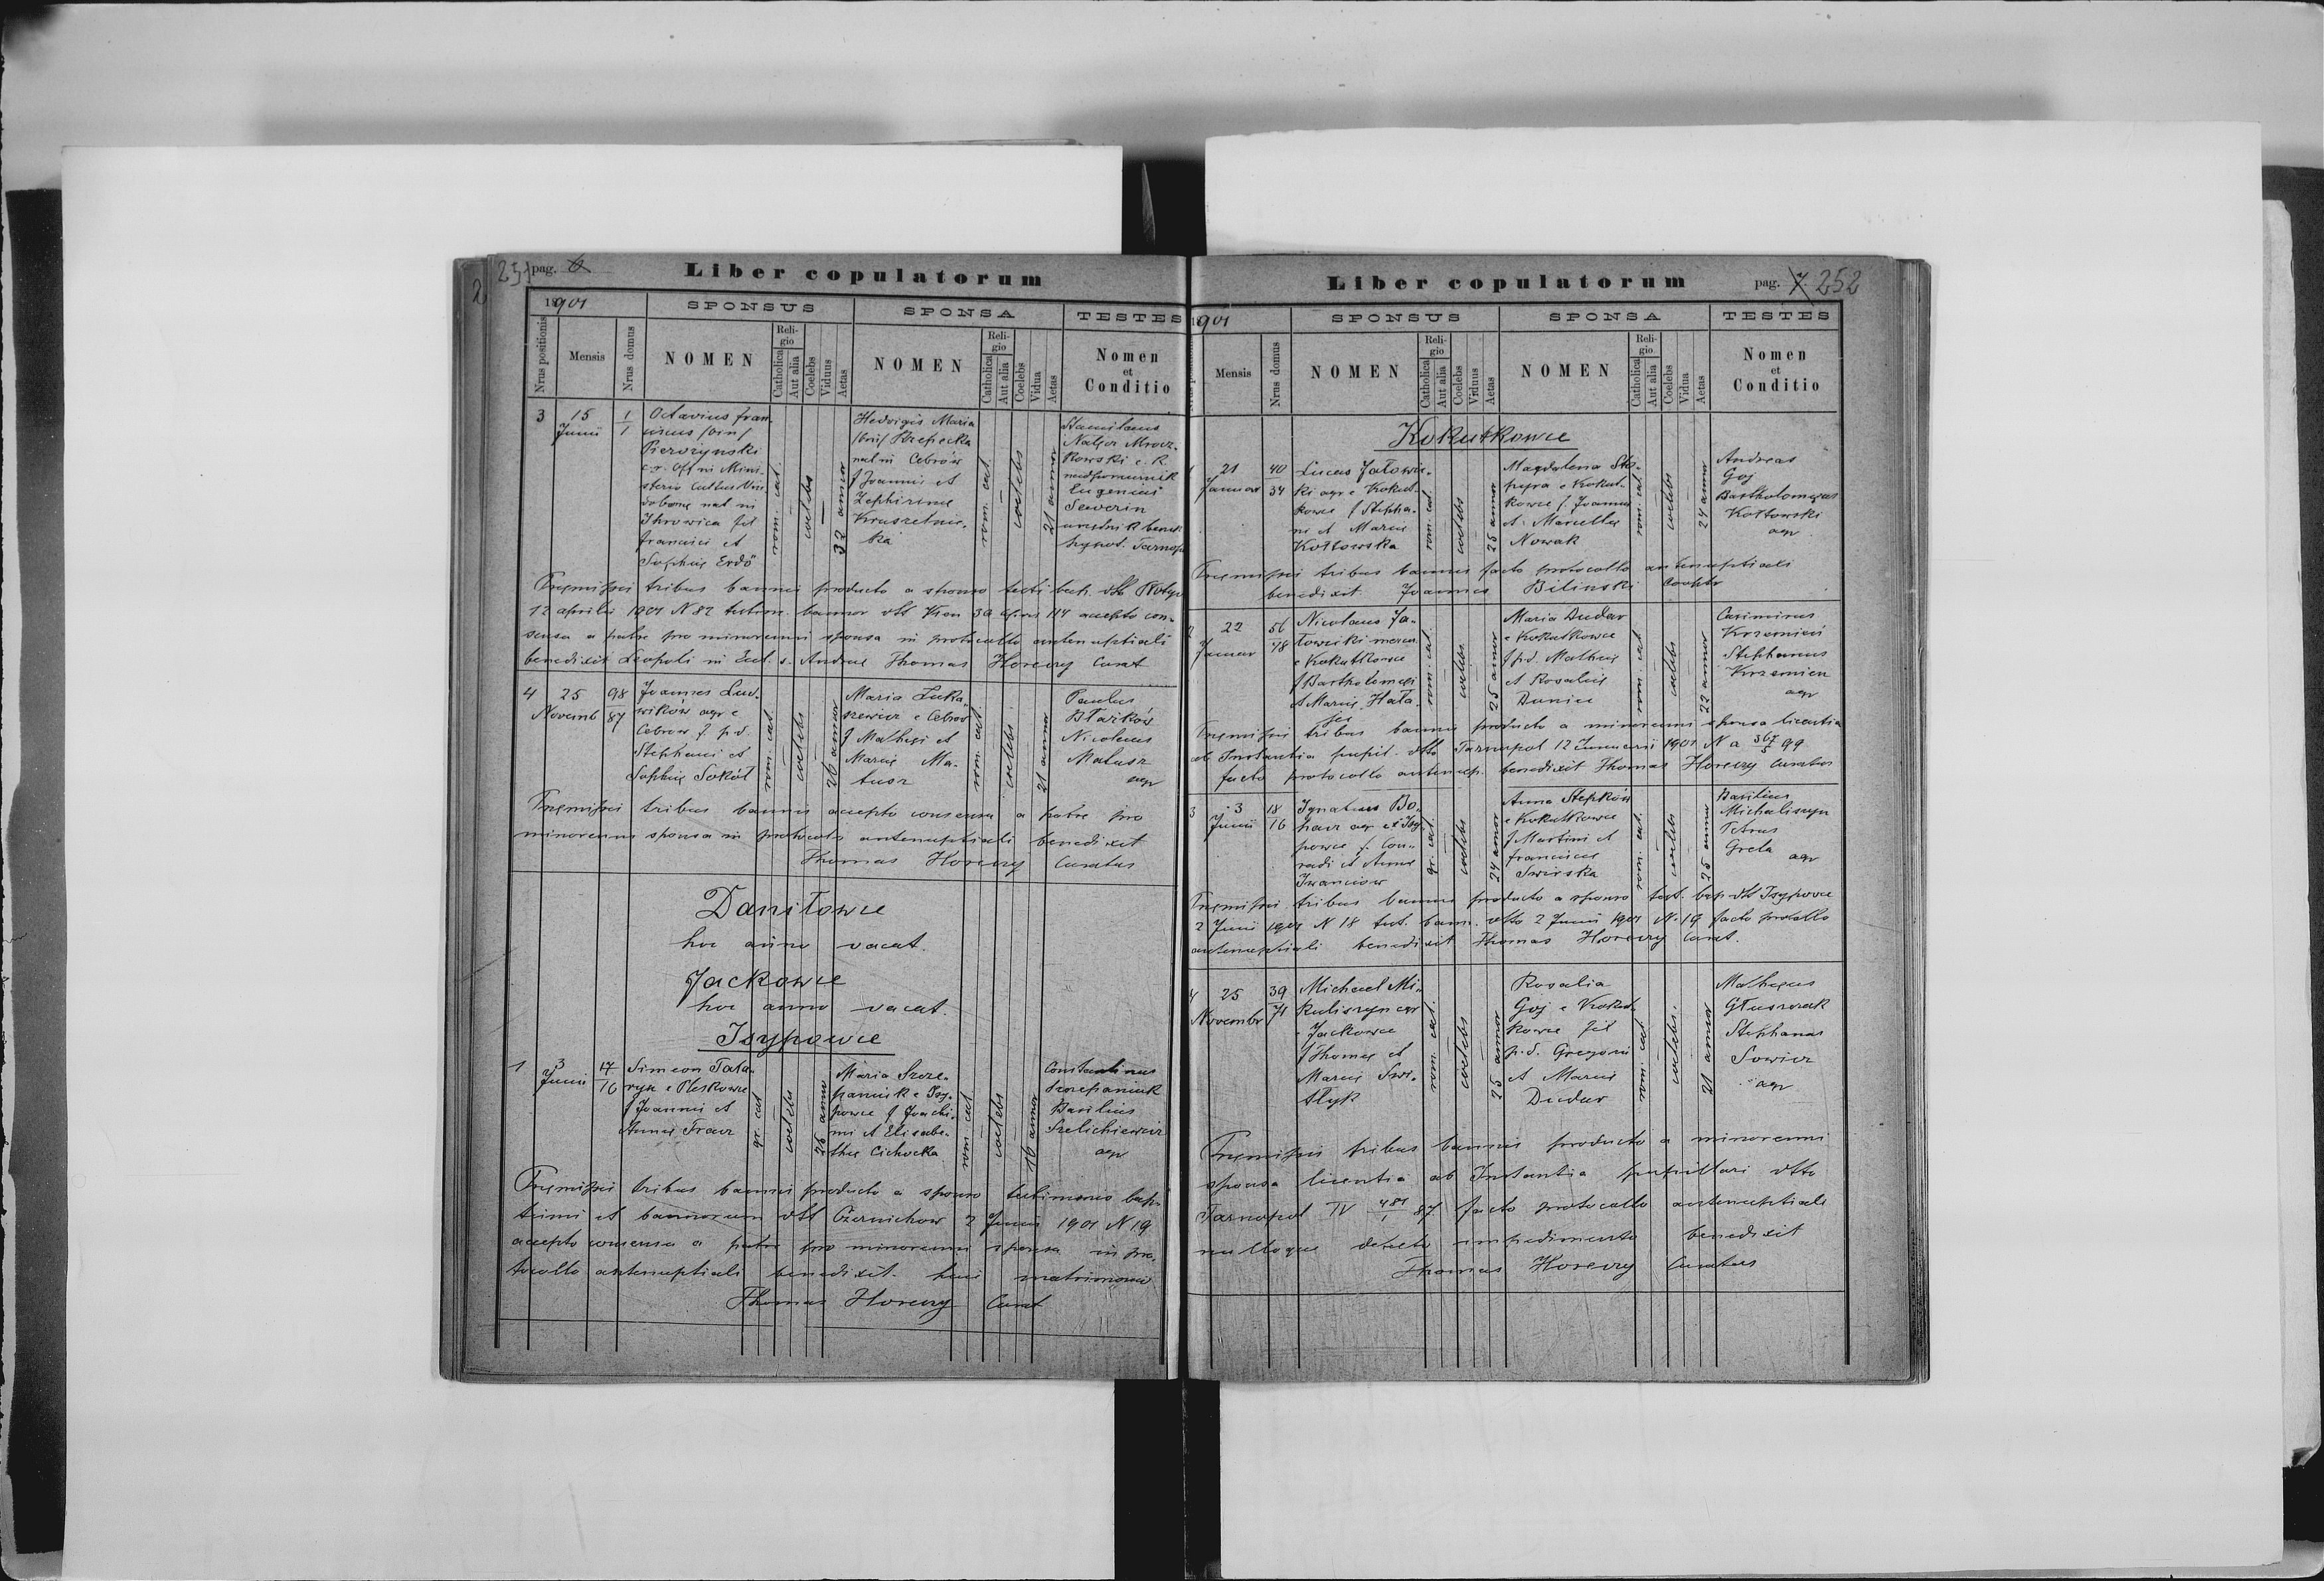 251 pag. 6
Liber copulatorum
1901
SPONSUS
SPONSA
TESTES
Nrus positionis
Mensis
Nrus domus
NOMEN
Religio
Catholica
Aut alia
Coelebs
Viduus
Aetas
NOMEN
Religio
Catholica
Aut alia
Coelebs
Vidua
Aetas
Nomen
et
Conditio
3
15
Junii
1
1
Octavius fran-
ciscus
Pierozynski
c. r. Off in Mini-
steria Cultus Vin-
dobonę nat in
Ihrowica fil
Francisci et
Sophię Erdö
rom. cat.
coelebs
32 annor
Hedvigis Maria
nat in Cebrów
f Joannis et
Zephirinę
Kruszelnic-
ka
rom. cat.
coelebs
21 annor
Stanislaus
kowski c. R.
Eugenius
Severin
urzędnik banku
hypot. Tarnop
Pręmissis tribus bannis producto a sponso testi bapt. dtto
12 aprilis 1901 N 82 testim. bannor dtto 114 accepto con-
sensu a patre pro minorenni sponsa in protocollo antenuptiali
benedixit Leopoli in Eccl. s. Andreę Thomas Horeczy Curat
4
25
Novemb
98
87
Joannes Lud-
wików agr e
Cebrow f p.d.
Stephani et
Sophię Sokół
rom. cat.
coelebs
26 annor
Maria Łuka-
szewicz e Cebrow
f Mathęi et
Marię Ma-
tusz
rom. cat.
coelebs
21 annor
Paulus
Błazków
Nicolaus
Matusz
agr
Pręmissis tribus bannis accepto consensu a patre pro
minorenni sponsa in protocolo antenuptiali benedixit
Thomas Horeczy Curatus
Daniłowce
hoc anno vacat.
Jackowce
hoc anno vacat.
Isypowce
1
3
Junii
17
16
Simeon Tata-
ryn e Pleskowce
f Joannis et
Annę Fracz
gr. cat
coelebs
26 annor
Maria Szcze-
paniuk e Isy-
powce f Joachi-
mi et Elisabe-
thę Cichocka
rom. cat
coelebs
16 annor
Constantinus
Szczepaniuk
Basilius
Szelichiewicz
agr
Pręmissis tribus bannis producto a sponso testimonio bap-
tismi et bannorum dtto Czernichow 2 Junii 1901 N 19
accepto consensu a patre pro minorenni sponsa in pro-
tocollo antenuptiali benedixit huic matrimonio
Thomas Horeczy Curat
Liber copulatorum
pag. 7 252
1901
SPONSUS
SPONSA
TESTES
Mensis
Nrus domus
NOMEN
Religio
Catholica
Aut alia
Coelebs
Viduus
Aetas
NOMEN
Religio
Catholica
Aut alia
Coelebs
Vidua
Aetas
Nomen
et
Conditio
Kokutkowce
1
21
Januar
40
34
Lucas Jałowic-
ki agr e Kokut-
kowce f Stepha-
ni et Marię
Kotłowska
rom. cat.
coelebs
25 annor
Magdalena Sko-
pyra e Kokut-
kowce f. Joannis
et Marcellę
Nowak
rom. cat.
coelebs
24 annor
Andreas
Goj
Bartholomęus
Kotłowski
agr
Pręmissis tribus bannis facto protocollo antenuptiali
benedixit Joannes Bilinski Cooptr
2
22
Januar
56
48
Nicolaus Ja-
łowicki
e Kokutkowce
f Bartholomęi
et Marię Hała-
jej
rom. cat.
coelebs
25 annor
Maria Dudar
e Kokutkowce
f p.d. Mathęi
et Rosalię
Danies
rom. cat
coelebs
22 annor
Casimirus
Krzemień
Stephanus
Krzemien
agr
Pręmissis tribus bannis producto a minorenni sponsa licentia
ab Instantia pupil. dtto Tarnopol 12 Januarii 1901 N a 367/5 99
facto protocollo antenup. benedixit Thomas Horeczy Curatus
3
3
Junii
18
16
Ignatius Bo-
hacz agr ex Isy-
powce f. Con-
radi et Annę
Iwanciow
gr. cat.
coelebs
24 annor
Anna Stepków
e Kokutkowce
f Martini et
Franciscę
Swirska
rom. cat.
coelebs
25 annor
Basilius
Michaliszyn
Petrus
Greta
agr
Pręmissis tribus bannis producto a sponso test. bap dtto Isypowce
2 Junii 1901 N 18 test. bann. dtto 2 Junii 1901 N. 19 facto protocollo
antenuptiali benedixit Thomas Horeczy Curat.
4
25
Novembr
39
71
Michael Mi-
kuliszyn agr
e Jackowce
f Thomę et
Marię Swi-
stłyk
rom. cat.
coelebs
25 annor
Rosalia
Goj e Kokut-
kowce fil
p.d. Gregorii
et Marię
Dudar
rom. cat
coelebs.
21 annor
Mathęus
Głuszczak
Stephanus
Sowicz
agr
Pręmissis tribus bannis producto a minorenni
sponsa licentia ab Instantia pupillari dtto
Tarnopol IV 481/1 87 facto protocollo antenuptiali
nulloque detecto impedimento benedixit
Thomas Horeczy Curatus